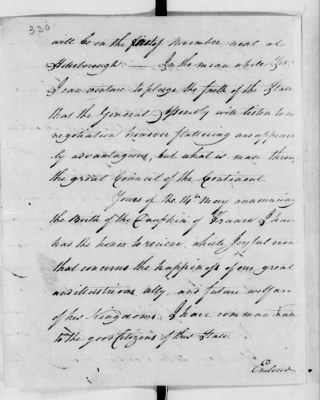 330
will be on the first of November next at
Petersborough — In the mean while Yr.
I can venture to pledge the faith of the State
that the General Assembly will listen to no
negotiation however flattering and appearent
ly advantagious, but what is made through
the great Council of the Continent
Yours of the 14th May announcing
the Birth of the Dauphin of France I
has the honor to receive, which Joyful event
that concerns the happiness of our great
and illustrious ally, and future welfare
of his Kingdoms, I have communicated
to the good Citizens of this State
Enclosed